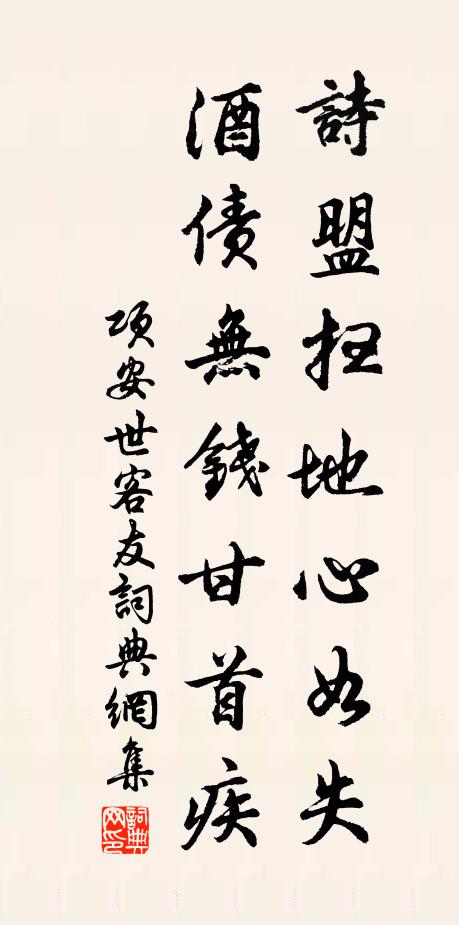 詩盟扫地心如失
酒债無錢甘首疾
项安世客友詞典網集
詞典網印